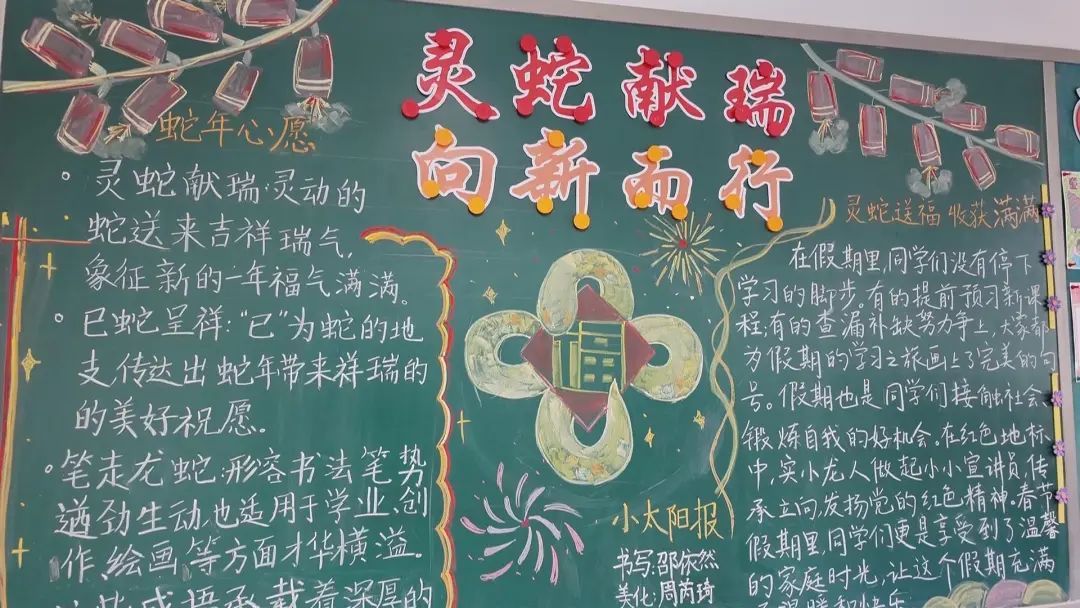 灵蛇献瑞
向新而行
蛇年心愿
·灵蛇献瑞:灵动的
蛇送来吉祥瑞气,
象征新的一年福气满满。
·巳蛇呈祥:“巳”为蛇的地
支传达出蛇年带来祥瑞的
的美好祝愿。
·笔走龙蛇:形容书法笔势
遒劲生动,也适用于学业、创
作、绘画、等方面才华横溢。
这些成语承载着深厚的
小太阳报
书写:邵依然
美化:周芮琦
灵蛇送福 收获满满
在假期里,同学们没有停下
学习的脚步。有的提前预习新课
程;有的查漏补缺努力争上,大家都
为假期的学习之旅画上了完美的句
号。假期也是同学们接触社会、
锻炼自我的好机会。在红色地标
中,实小龙人做起小小宣讲员,传
承立向,发扬党的红色精神。春节
假期里,同学们更是享受到了温馨
的家庭时光,让这个假期充满
了温暖和快乐